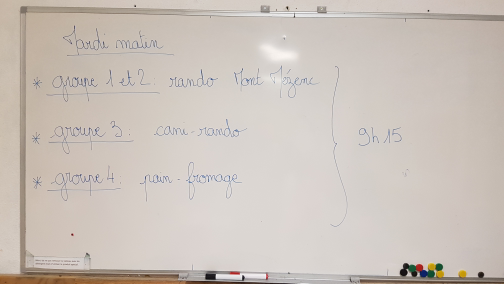 Mardi matin
* groupe 1 et 2 : rando Mont Mézenc
* groupe 3 : cani-rando
9h15
* groupe 4 : pain-fromage